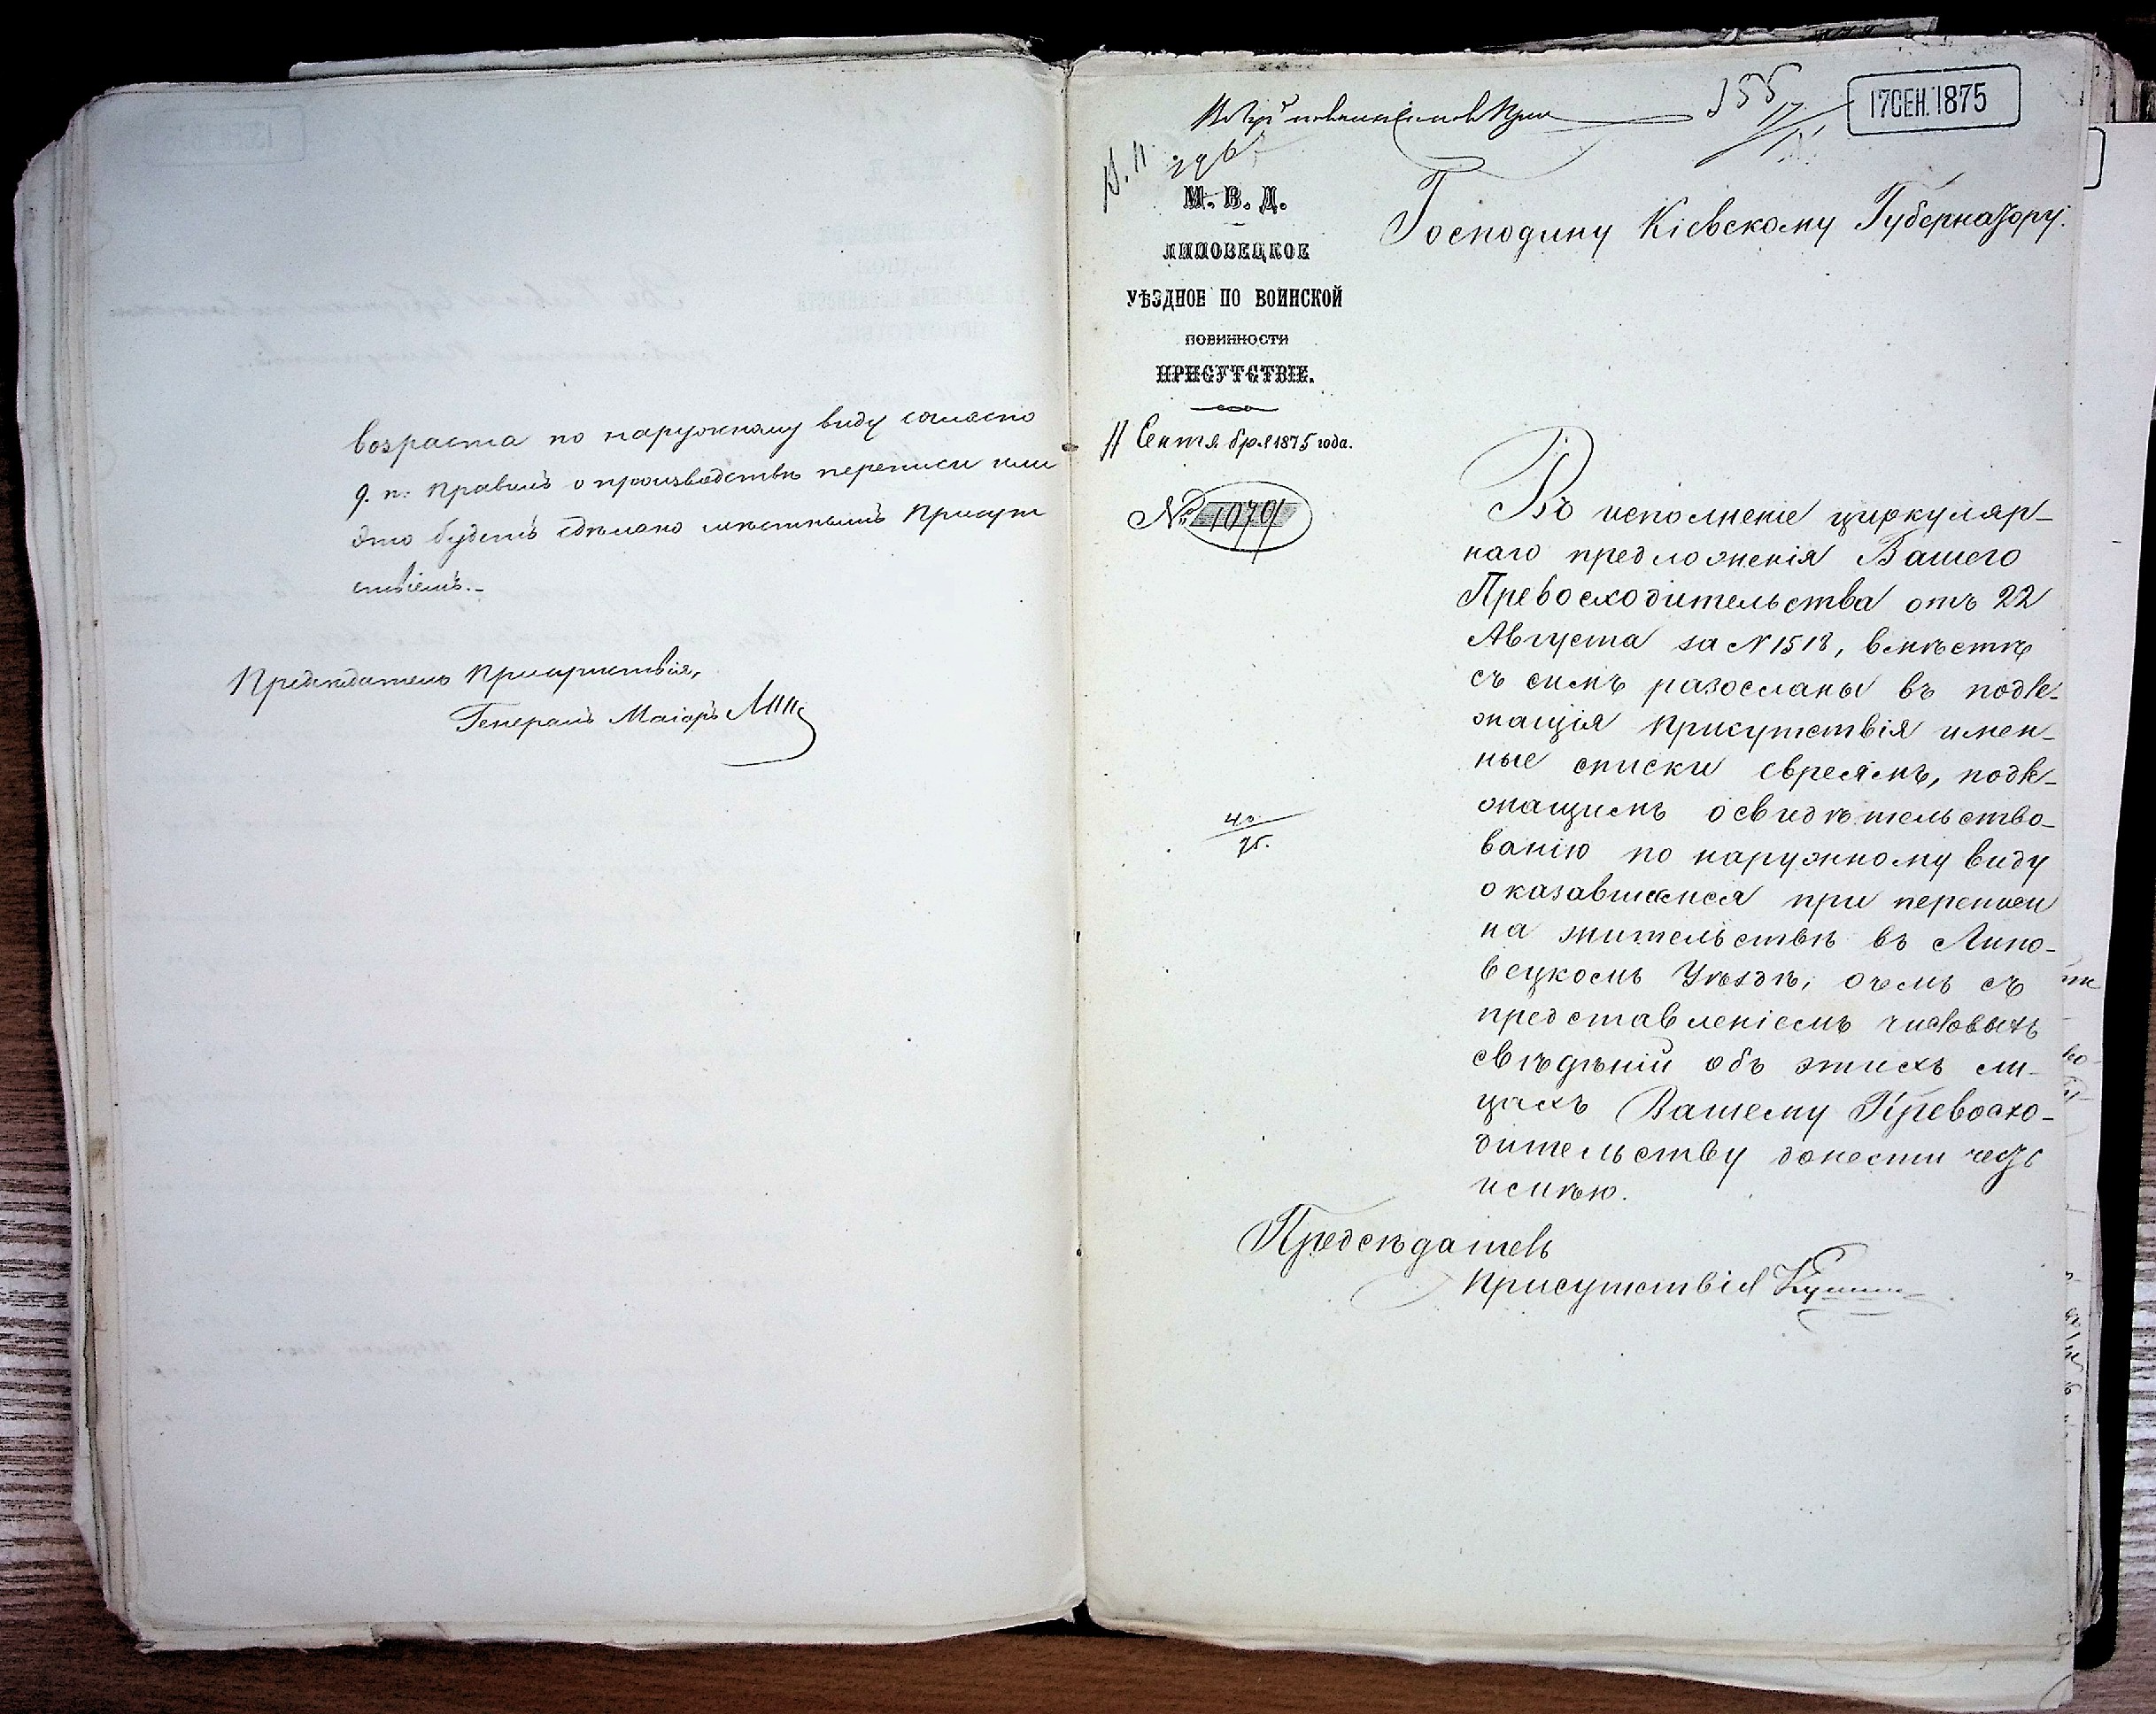 возраста по наружному виду согласно
9. п. Правилъ о производствѣ переписи или
это будетъ сдѣлано мѣстнымъ Присут
ствіемъ.-
Предсѣдатель Присутствія,
Генералъ Маіоръ
17 СЕН. 1875
М. В. Д.
ЛИПОВЕЦКОЕ
УѢЗДНОЕ ПО ВОИНСКОЙ
ПОВИННОСТИ
ПРИСУТСТВІЕ.
11 Сентября 1875 года.
№ 1079
40/75.
Господину Кіевскому Губернатору.
Во исполненіе циркуляр-
наго предложенія Вашего
Превосходительства отъ 22
Августа за N 1518, вмѣстѣ
съ симъ разосланы въ подле-
жащія присутствія имен-
ные списки евреямъ, подле-
жащимъ освидѣтельство-
ванію по наружному виду
оказавшимся при переписи
на жительствѣ въ Липо-
вецкомъ Уѣздѣ, о чемъ съ
представленіемъ числовыхъ
свѣдѣній объ этихъ ли-
цахъ Вашему Превосхо-
дительству донести честь
имѣю.
Предсѣдатель
Присутствія